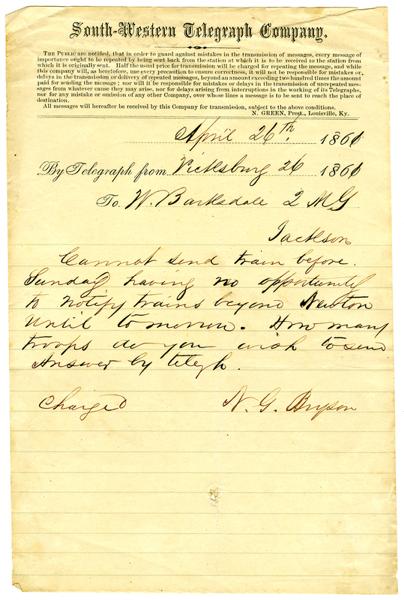 South-Western Telegraph Company.
THE PUBLIC are notified, that in order to guard against mistakes in the transmission of messages, every message of
importance ought to be repeated by being sent back from the station at which it is to be received to the station from
which it is originally sent. Half the usual price for transmission will be charged for repeating the message, and while
this company will, as heretofore, use every precaution to ensure correctness, it will not be responsible for mistakes or,
delays in the transmission or delivery of repeated messages, beyond an amount exceeding two hundred times the amount
paid for sending the message; nor will it be responsible for mistakes or delays in the transmission of unrepeated mes-
sages from whatever cause they may arise, nor for delays arising from interruptions in the working of its Telegraphs,
nor for any mistake or omission of any other Company, over whose lines a message is to be sent to reach the place of
destination.
All messages will hereafter be received by this Company for transmission, subject to the above conditions.
N. GREEN, Prest., Louisville, Ky.
April 26th, 1861
By Telegraph from Vicksburg 26 1861
To W. Barksdale 2 M G
Jackson
Cannot send train before.
Sunday having no opportunity
to notify trains beyond Newton
until to morrow. How many
troops do you wish to send
Answer by telegh.
Charged N. G. Bryson